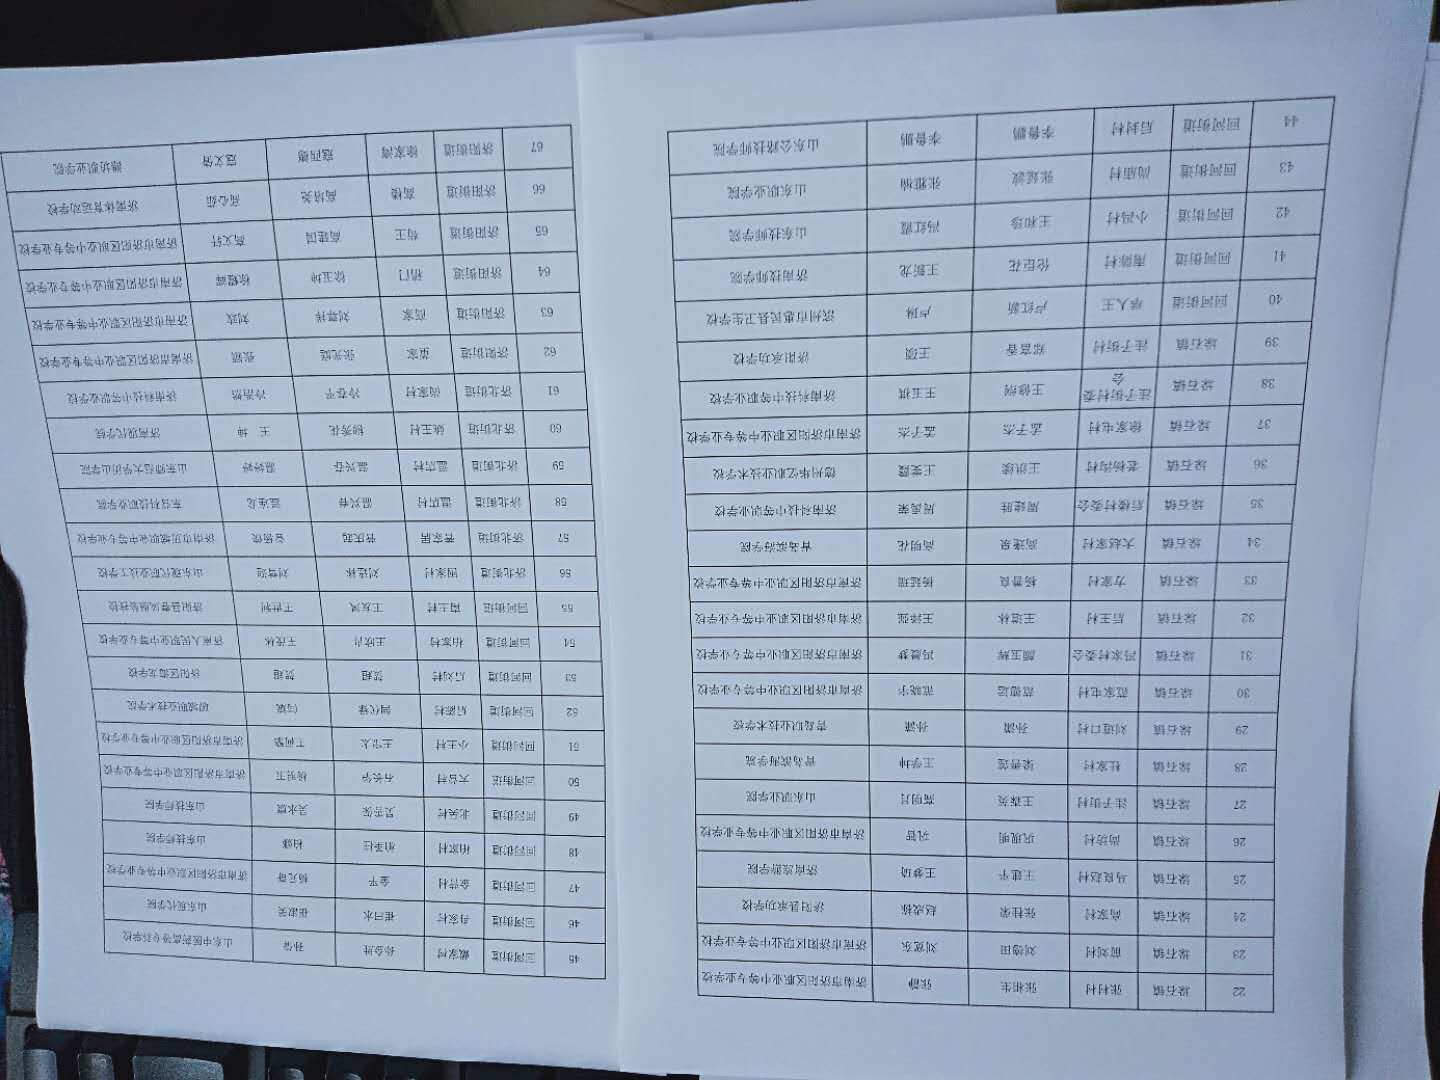 22 垛石镇 张村村 张相生 张静 济南市济阳区职业中等专业学校
23 垛石镇 前刘村 刘德田 刘宽东 济南市济阳区职业中等专业学校
24 垛石镇 高家村 张桂荣 赵成栋 济阳县承功学校
25 垛石镇 马良赵村 王建平 王梦琦 济南旅游学院
26 垛石镇 尚坊村 巩现明 巩晋 济南市济阳区职业中等专业学校
27 垛石镇 洼子街村 王霖英 高明月 山东职业学院
28 垛石镇 杜家村 梁普莲 王学坤 青岛滨海学院
29 垛石镇 刘道口村 孙潇 孙潇 青岛职业技术学校
30 垛石镇 范家屯村 范德运 范晓宇 济南市济阳区职业中等专业学校
31 垛石镇 冯家村委会 颜玉辉 冯晨梦 济南市济阳区职业中等专业学校
32 垛石镇 后王村 王进林 王泽强 济南市济阳区职业中等专业学校
33 垛石镇 方家村 杨曾良 杨延瑞 济南市济阳区职业中等专业学校
34 垛石镇 大赵家村 高逢泉 高明花 青岛滨海学院
35 垛石镇 后楼村委会 周建胜 周禹荣 济南科技中等职业学校
36 垛石镇 老杨沟村 王洪续 王雯霞 德州华亿职业技术学校
37 垛石镇 徐家屯村 孟子杰 孟子杰 济南市济阳区职业中等专业学校
38 垛石镇 洼子街村委会 王修纲 王玉祺 济南科技中等职业学校
39 垛石镇 洼子街村 郑富香 王硕 济阳承功学校
40 回河街道 举人王 卢红新 卢琳 滨州市惠民县卫生学校
41 回河街道 南陈村 伦臣花 王新龙 济南技师学院
42 回河街道 小冯村 王和珍 冯红霞 山东技师学院
43 回河街道 尚庙村 张延波 张雅楠 山东职业学院
44 回河街道 后封村 李鲁鹏 李鲁鹏 山东公路技师学院
45 回河街道 戴家村 孙金胜 孙倩 山东中医药高等专科学校
46 回河街道 冉家村 崔曰水 崔淑美 山东现代学院
47 回河街道 金管村 金平 杨元春 济南市济阳区职业中等专业学校
48 回河街道 柏家村 柏承柱 柏赚 山东技师学院
49 回河街道 北吴村 吴若保 吴永震 山东技师学院
50 回河街道 大谷村 石长华 杨明玉 济南市济阳区职业中等专业学校
51 回河街道 小王村 王宗太 王荷黎 济南市济阳区职业中等专业学校
52 回河街道 后陈村 闫代锋 闫斌 聊城职业技术学院
53 回河街道 后刘村 贺超 贺超 济阳区腾龙学校
54 回河街道 柏家村 王欣卉 王茂林 济南人民职业中等专业学校
55 回河街道 南王村 王友凤 王世利 济阳县曹风服装技校
56 济北街道 周家村 刘廷林 刘雪莹 山东现代职业技工学校
57 济北街道 菅家居 菅庆起 菅楷俊 济南市历城职业中等专业学校
58 济北街道 温店村 温兴春 温连龙 东营科技职业学院
59 济北街道 温店村 温兴存 温婷婷 山东师范大学历山学院
60 济北街道 姚王村 杨秀花 王坤 济南现代学院
61 济北街道 尚家村 冷春平 冷浩然 济南科技中等职业学校
62 济阳街道 董家 张光燕 张颖 济南市济阳区职业中等专业学校
63 济阳街道 范家 刘尊祥 刘政 济南市济阳区职业中等专业学校
64 济阳街道 稍门 徐玉坤 徐耀辉 济南市济阳区职业中等专业学校
65 济阳街道 苟王 高建国 高文轩 济南市济阳区职业中等专业学校
66 济阳街道 高楼 高培尧 高心茹 济南体育运动学校
67 济阳街道 徐家湾 寇西德 寇文倩 潍坊职业学院